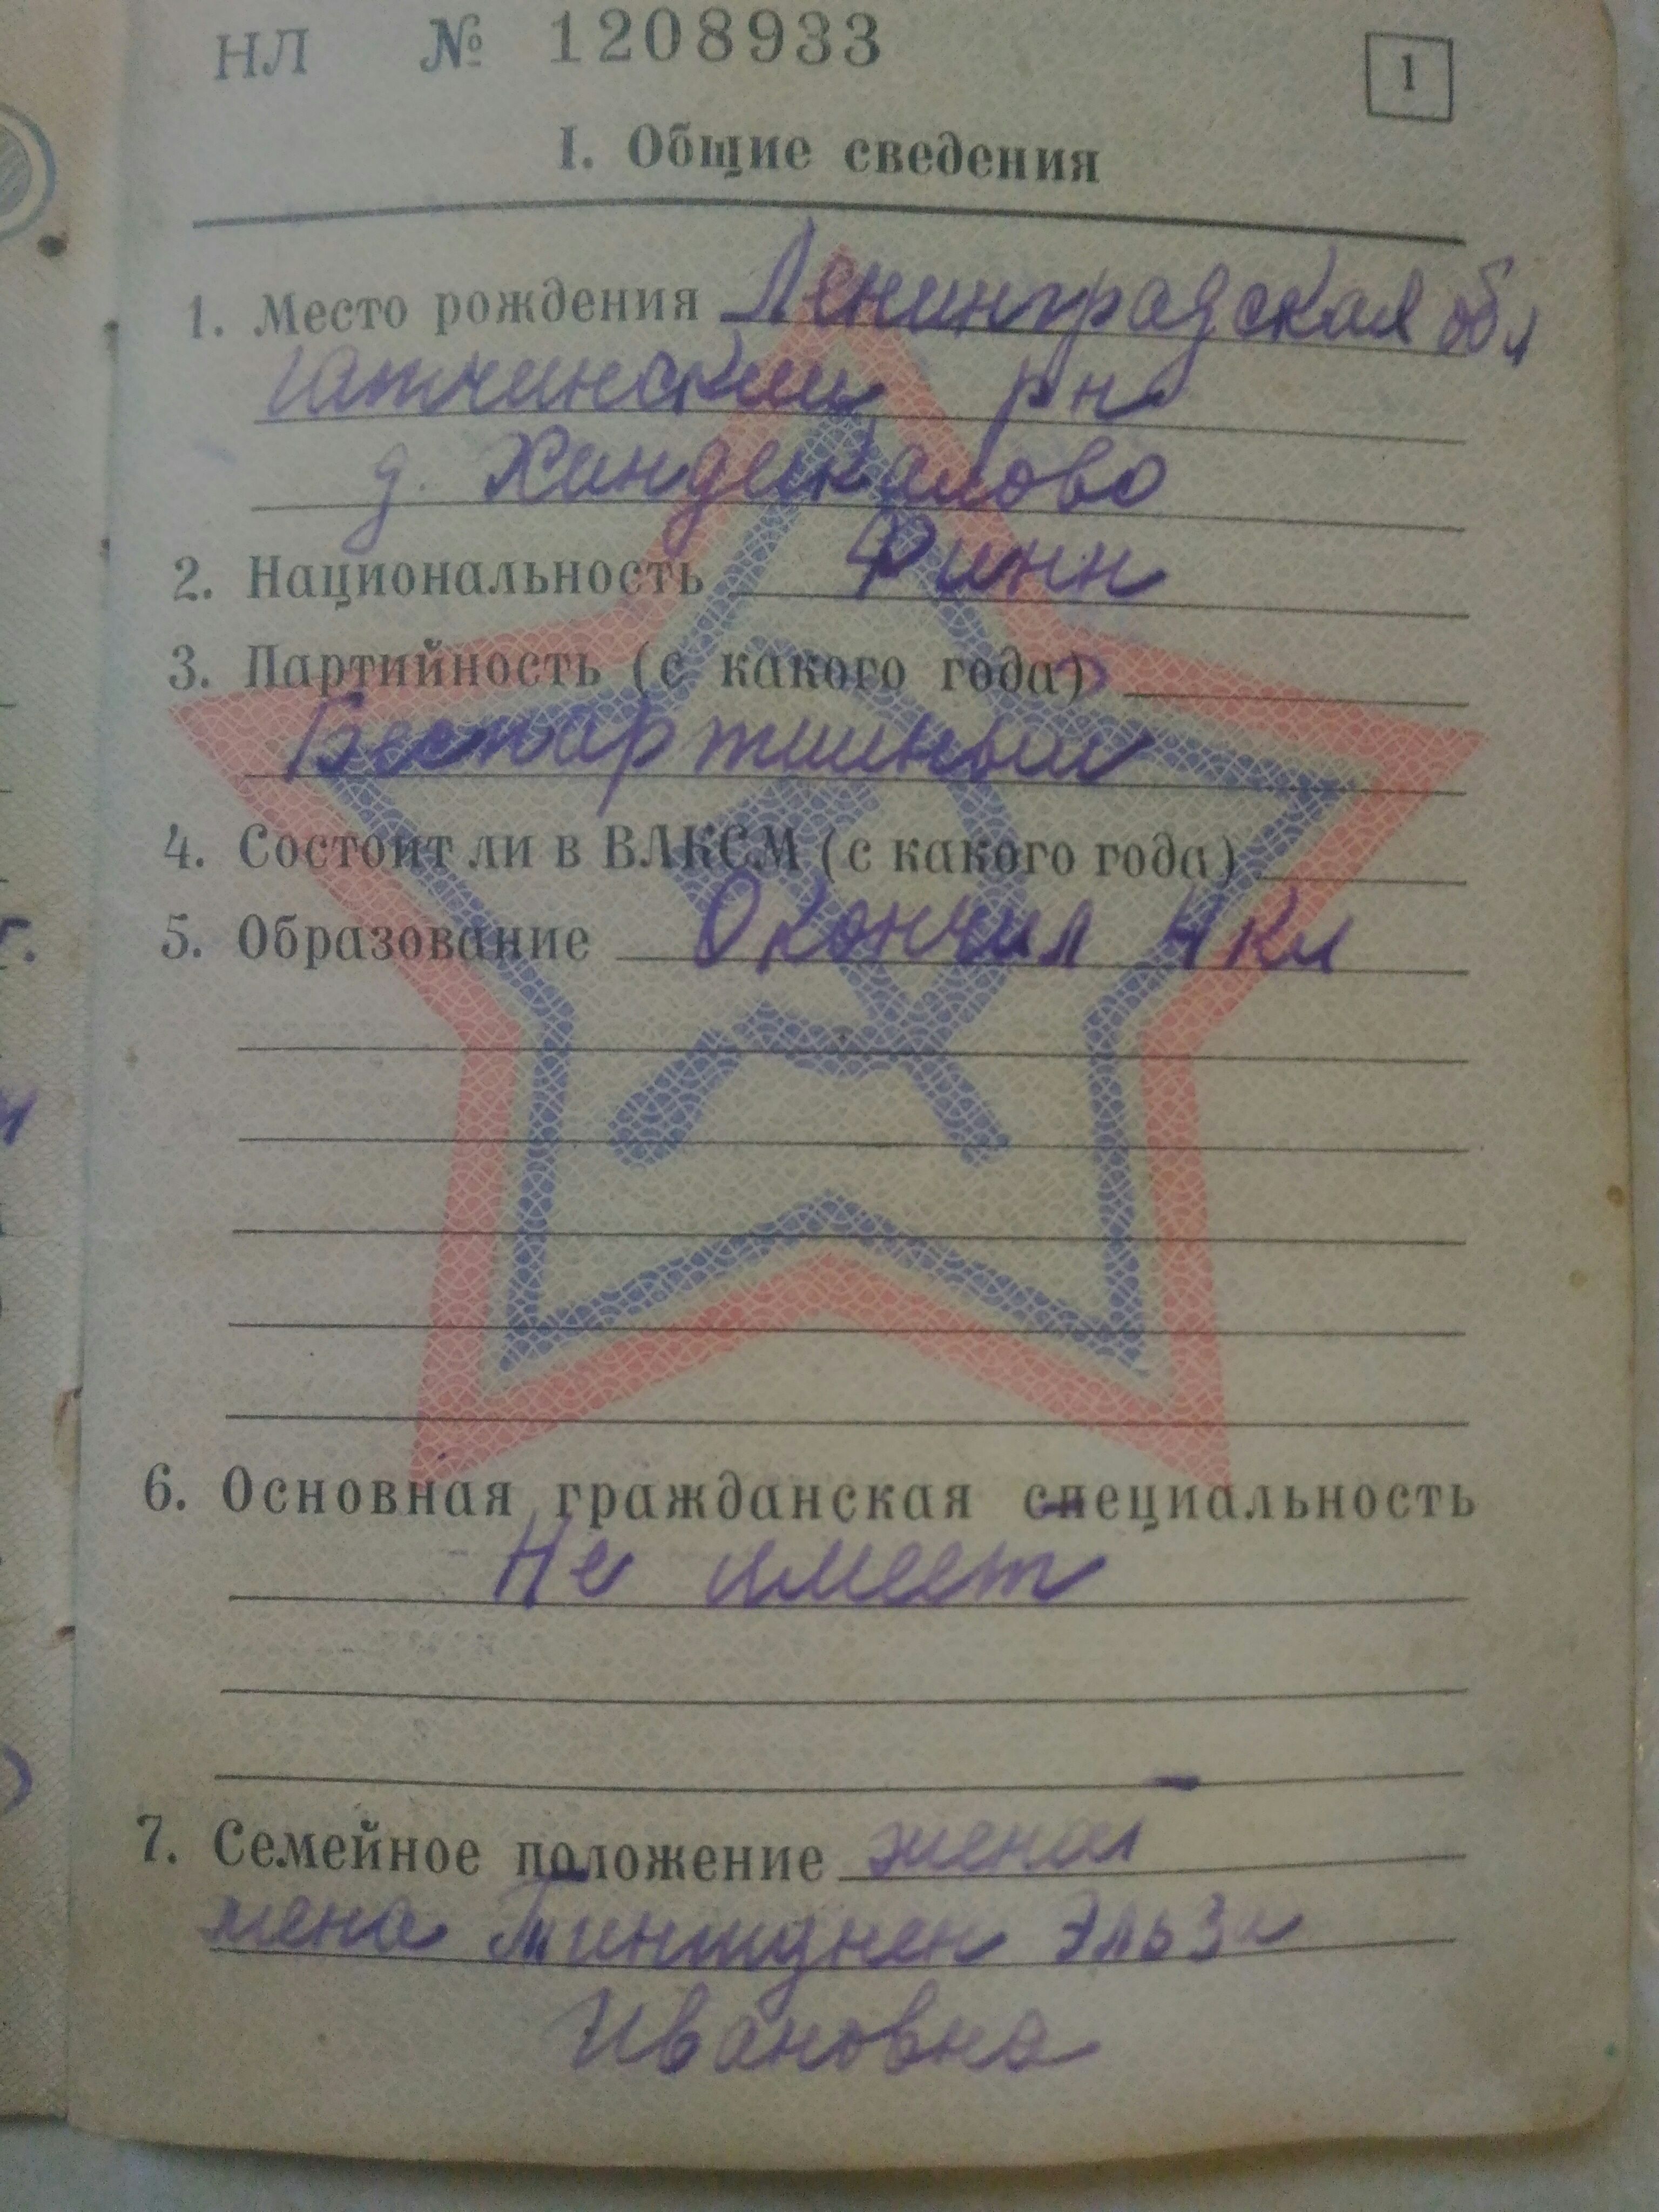 НЛ № 1208933
1
I. Общие сведения
1. Место рождения Ленинградская обл
Гатчинский р-н
д. Хандекалово
2. Национальность Финн
3. Партийность (с какого года)
Беспартийный
4. Состоит ли в ВЛКСМ (с какого года)
5. Образование Окончил 4 кл
6. Основная гражданская специальность
Не имеет
7. Семейное положение женат
жена Эльза
Ивановна